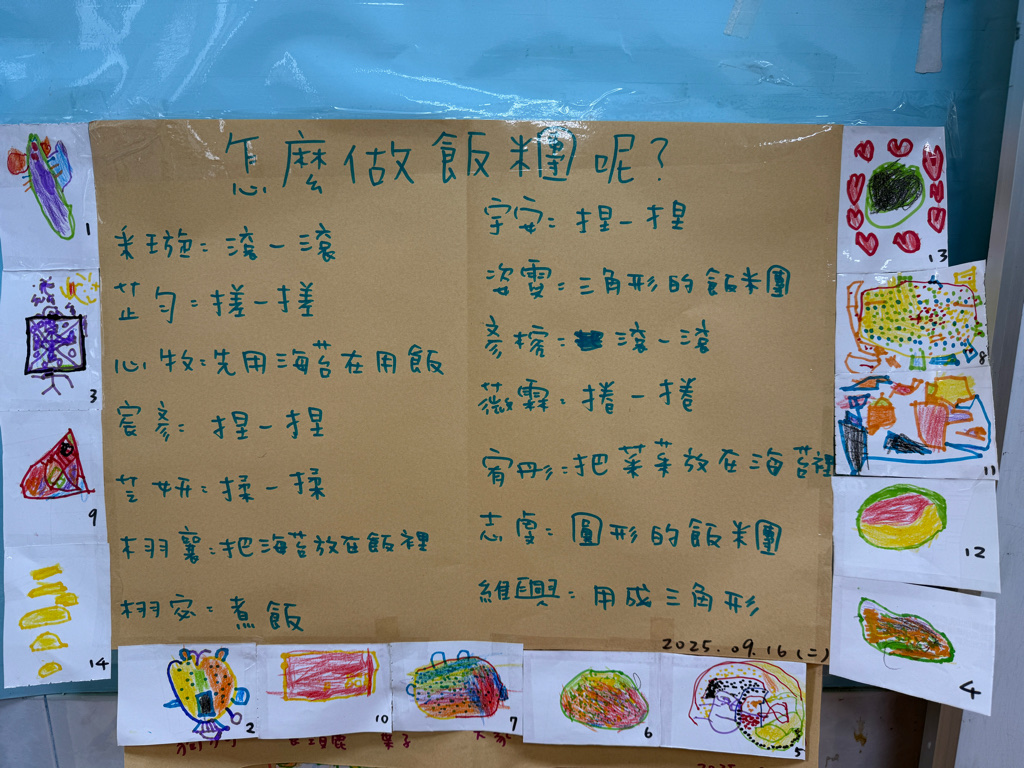 怎麼做飯糰呢?
采璇:滾一滾
芷勻:搓一搓
心牧:先用海苔在用飯
宸彥:捏一捏
芝妍:揉一揉
栩襄:把海苔放在飯裡
栩宓:煮飯
宇安:捏一捏
姿雯:三角形的飯糰
彥榕:滾一滾
薇霖:捲一捲
宥彤:把菜菜放在海苔裡
志虔:圓形的飯糰
維興:用成三角形
2025.09.16(二)
1
3
9
14
13
8
11
12
4
2
10
7
6
5